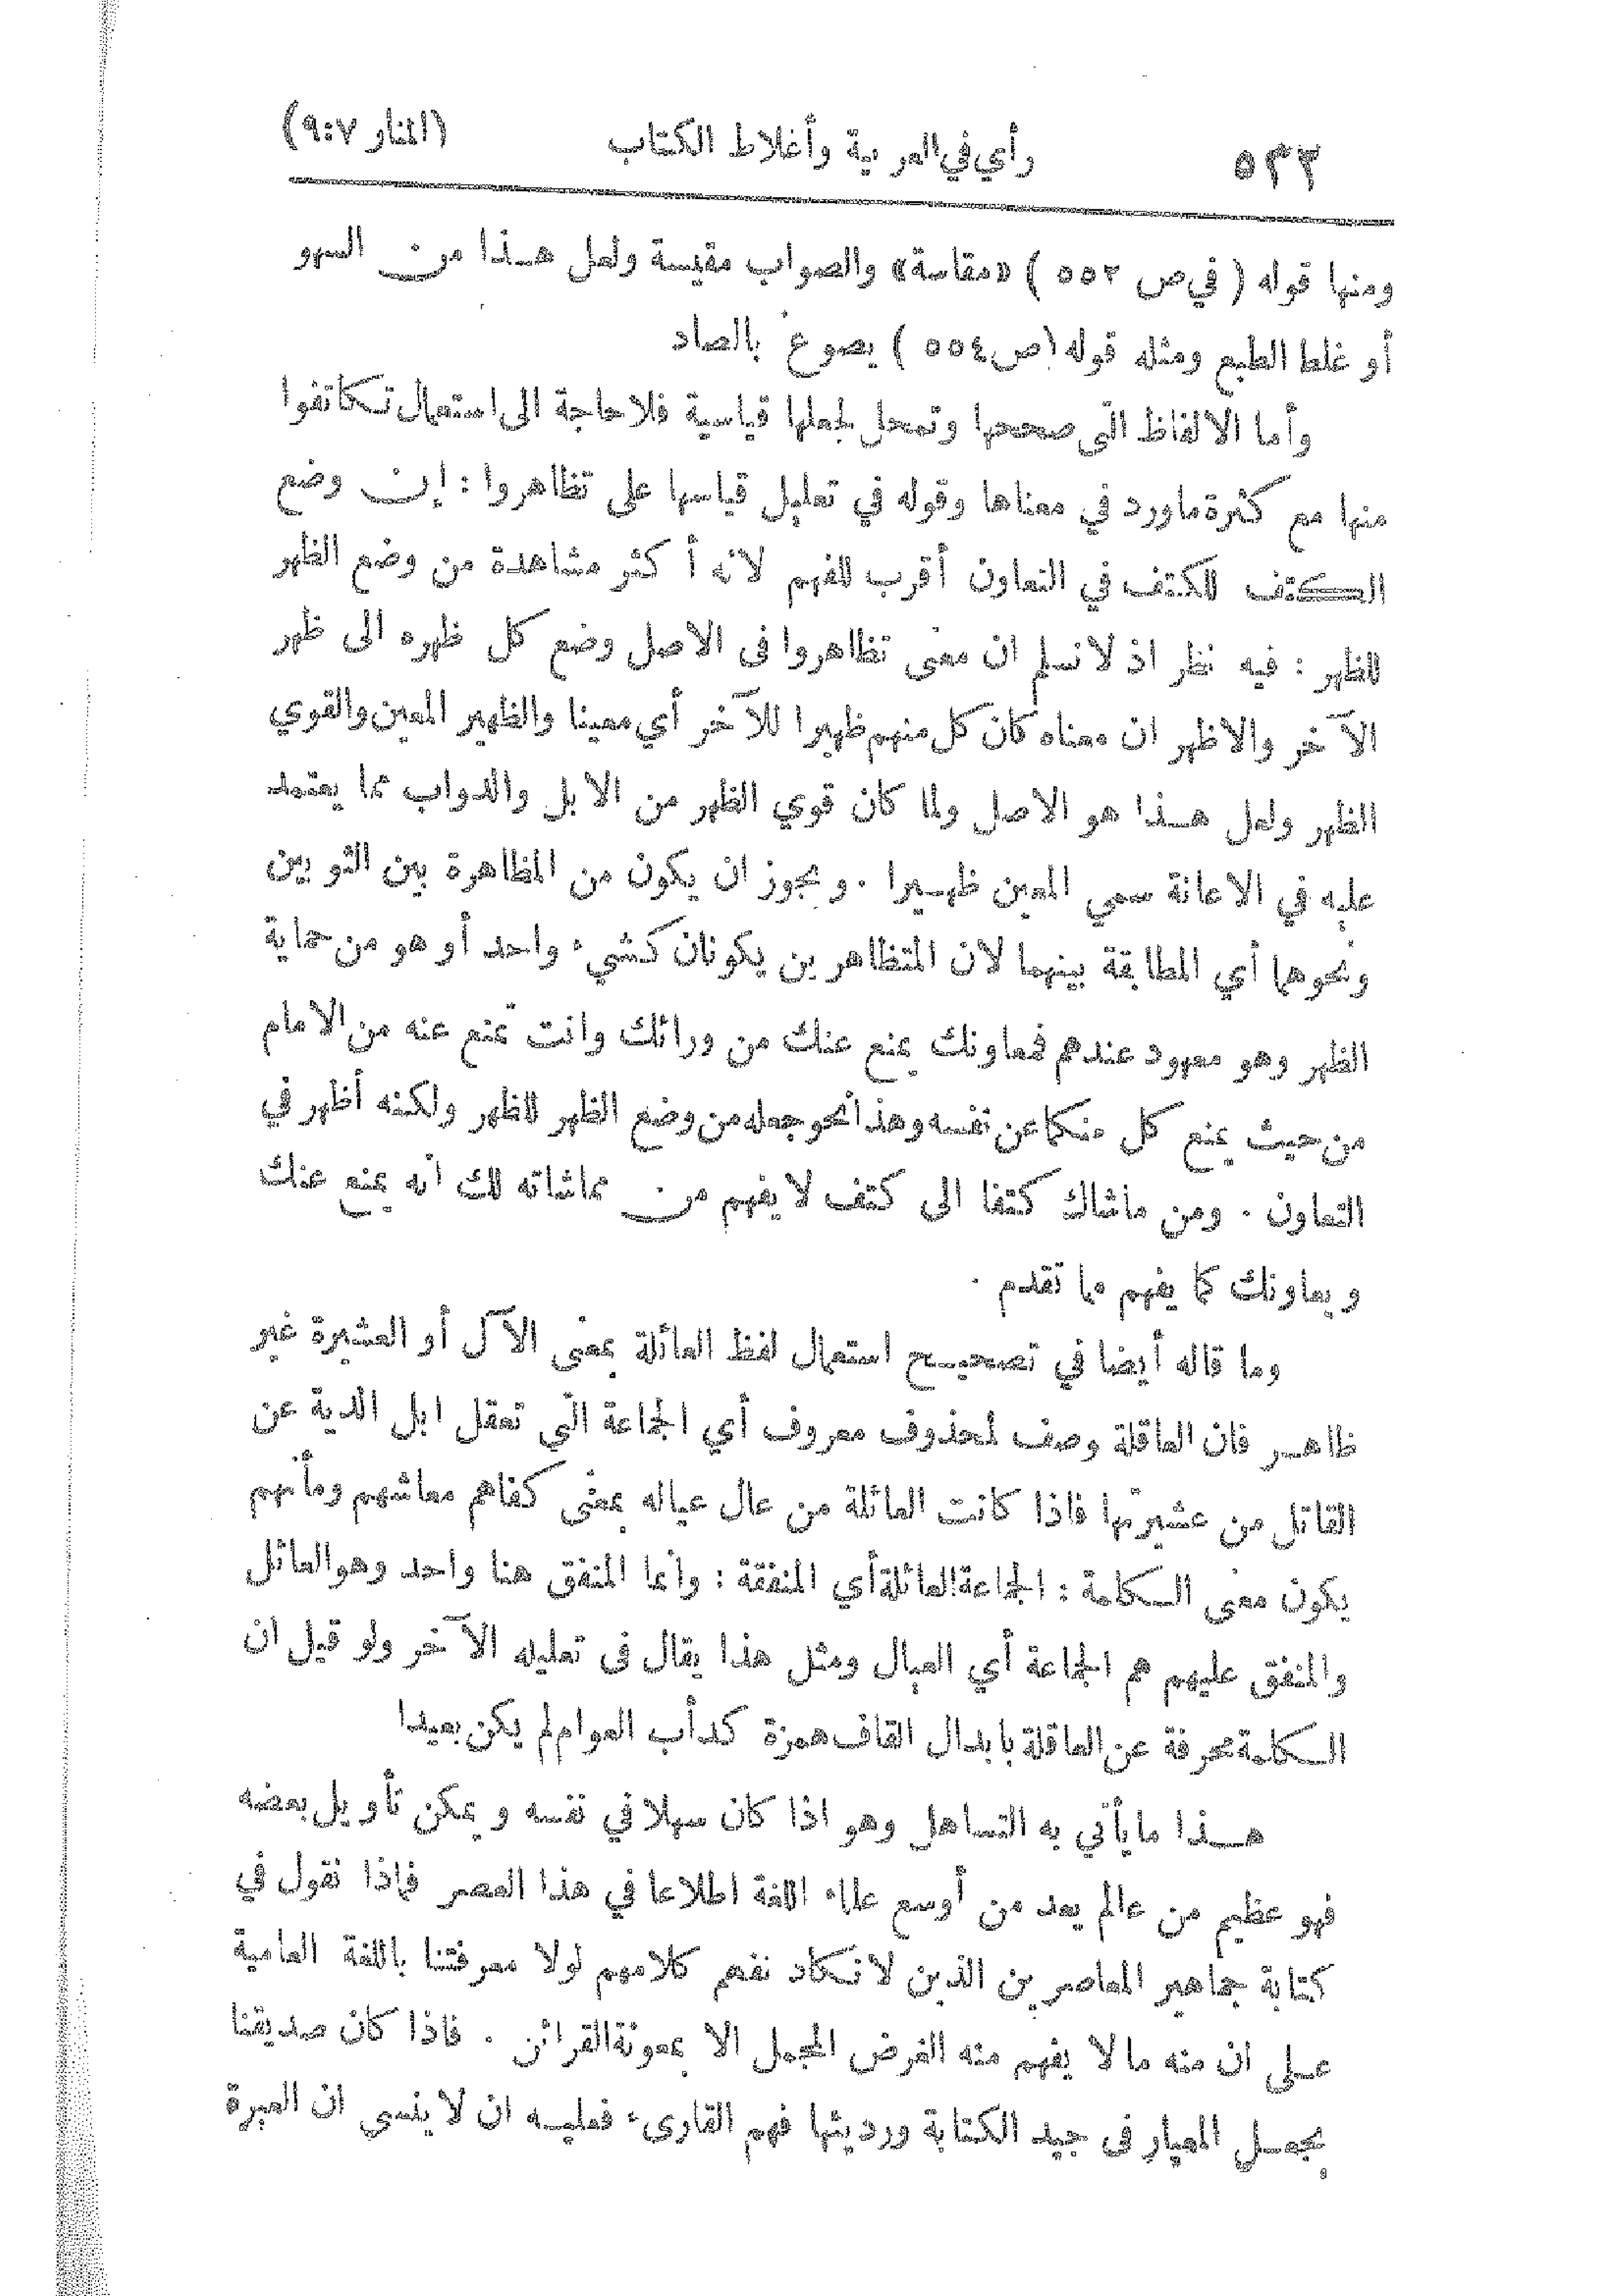 ٥٣٢ رأي في العربية وأغلاط الكتاب (المنار ٩:٧)
ومنها قوله ( في ص ٥٥٢ ) «مقاسة» والصواب مقيسة ولعل هـذا من السهو
أو غلط الطبع ومثله قوله (ص٥٥٤ ) يصوغ بالصاد
وأما الالفاظ التي صححها وتمحل لجعلها قياسية فلا حاجة الى استعمال تكاتفوا
منها مع كثرة ماورد في معناها وقوله في تعليل قياسها على تظاهروا : إن وضع
الكتف للكتف في التعاون أقرب للفهم لانه أكثر مشاهدة من وضع الظهر
للظهر : فيه نظر اذ لا نسلم ان معنى تظاهروا فى الاصل وضع كل ظهره الى ظهر
الآخر والاظهر ان معناه كان كل منهم ظهيرا للآخر أي معينا والظهير المعين والقوي
الظهر ولعل هـذا هو الاصل ولما كان قوي الظهر من الابل والدواب مما يعتمد
عليه في الاعانة سمي المعين ظهـيرا . ويجوز ان يكون من المظاهرة بين الثوبين
ونحوهما أي المطابقة بينهما لان المتظاهرين يكونان كشيء واحد أو هو من حماية
الظهر وهو معهود عندهم فمعاونك يمنع عنك من ورائك وانت تمنع عنه من الامام
من حيث يمنع كل منكما عن نفسه وهذا نحو جعله من وضع الظهر للظهر ولكنه أظهر في
التعاون . ومن ماشاك كتفا الى كتف لا يفهم من مماشاته لك انه يمنع عنك
ويعاونك كما يفهم مما تقدم .
وما قاله أيضا في تصحيـح استعمال لفظ العائلة بمعنى الآل أو العشيرة غير
ظاهـر فان العاقلة وصف لمحذوف معروف أي الجماعة التي تعقل ابل الدية عن
القاتل من عشيرتها فاذا كانت العائلة من عال عياله بمعنى كفاهم معاشهم ومأنهم
يكون معنى الـكلمة : الجماعة العائلة أي المنفقة : وانما المنفق هنا واحد وهو العائل
والمنفق عليهم هم الجماعة أي العيال ومثل هذا يقال فى تعليله الآخر ولو قيل ان
الـكلمة محرفة عن العاقلة بابدال القاف همزة كدأب العوام لم يكن بعيدا
هـذا ما يأتي به التساهل وهو اذا كان سهلا في نفسه ويمكن تأويل بعضه
فهو عظيم من عالم يعد من أوسع علماء اللغة اطلاعا في هذا العصر فماذا نقول في
كتابة جماهير المعاصرين الذين لا نكاد نفهم كلامهم لولا معرفتنا باللغة العامية
عـلى ان منه ما لا يفهم منه الغرض المجمل الا بمعونة القرائن . فاذا كان صديقنا
يجعـل المعيار فى جيد الكتابة ورديئها فهم القارىء فعليـه ان لا ينسى ان العبرة